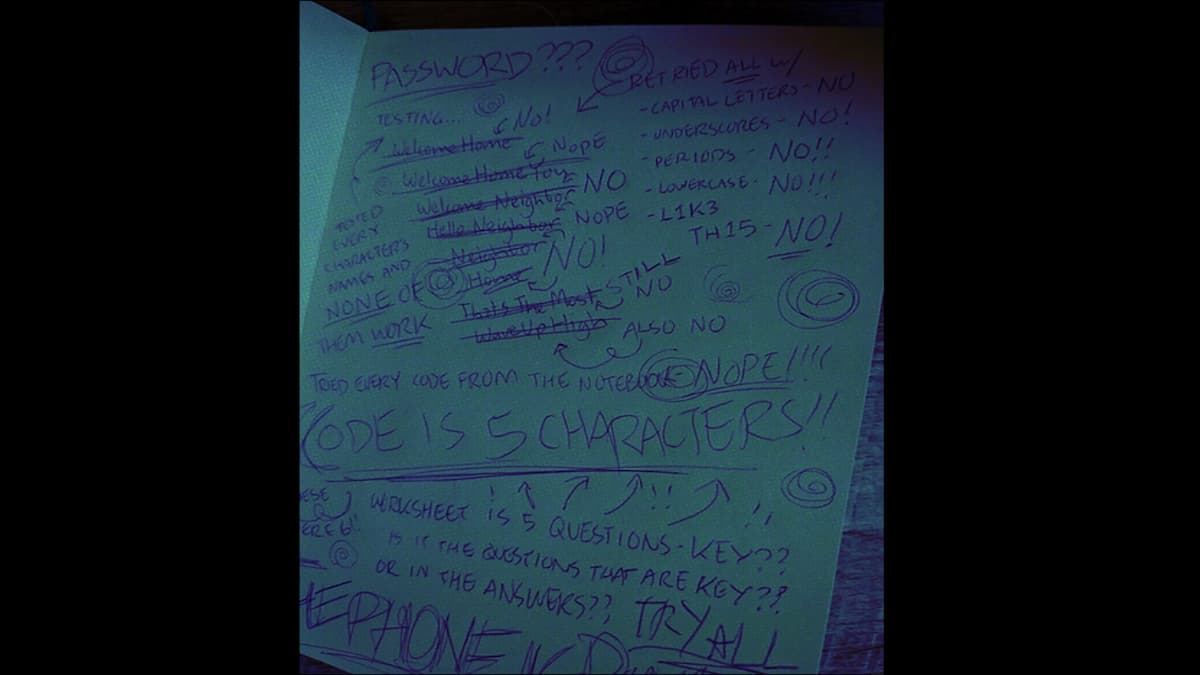 PASSWORD???
TESTING...
NO!
WelcomeHome
NOPE
Welcome Home You
NO
Welcome Neighbor
NOPE
Hello Neighbor
Neighbor
NO!
Home
Thats The Most
STILL
NO
WaveUpHigh
ALSO NO
TESTED
EVERY
CHARACTERS
NAMES AND
NONE OF
THEM WORK
RETRIED ALL W/
-CAPITAL LETTERS- NO
-UNDERSCORES- NO!
-PERIODS- NO!!
-LOWERCASE- NO!!!
-L1K3
TH15-NO!
TRIED EVERY CODE FROM THE NOTEBOOK- NOPE!!!!
CODE IS 5 CHARACTERS!!
WORKSHEET IS 5 QUESTIONS-KEY??
IS IT THE QUESTIONS THAT ARE KEY??
OR IN THE ANSWERS??
TRY ALL